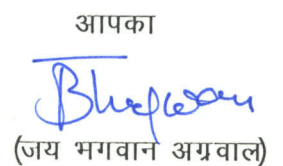 आपका
Bhagwan
(जय भगवान अग्रवाल)